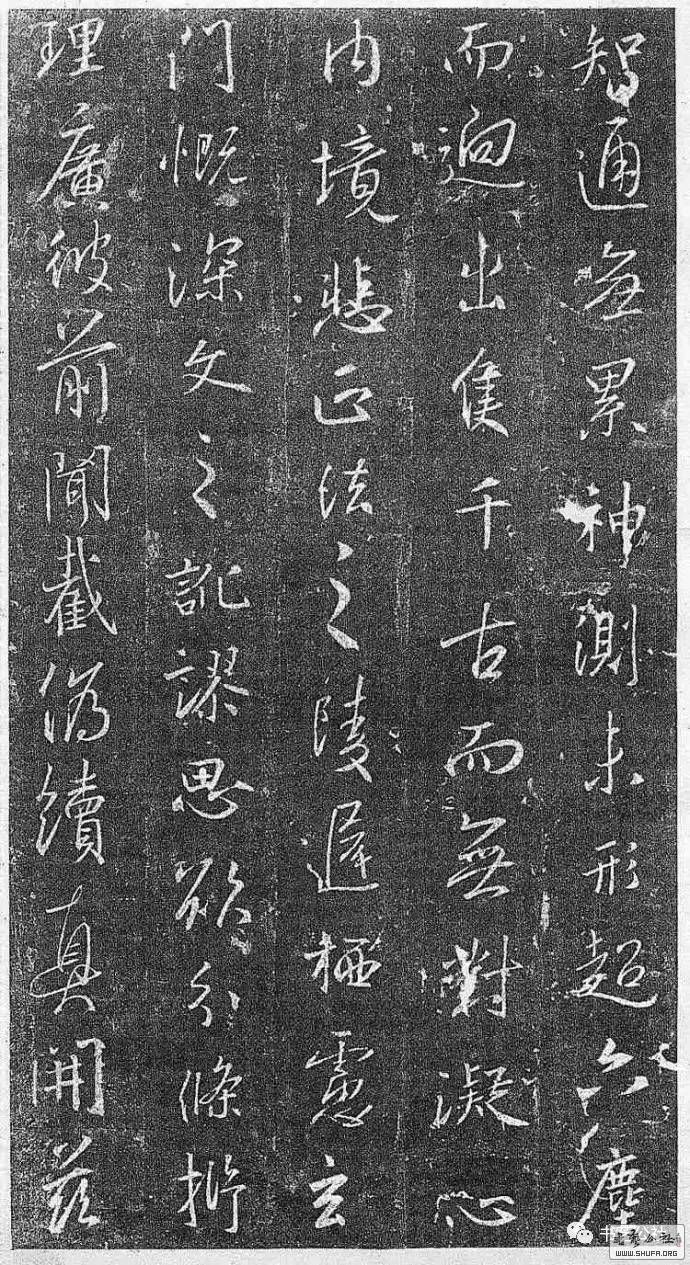 智通無累神測未形超六塵
而迥出隻千古而無對凝心
內境悲正法之陵遲栖慮玄
門慨深文之訛謬思欲分條析
理廣彼前聞截偽續真開茲
WWW.SHUFA.ORG